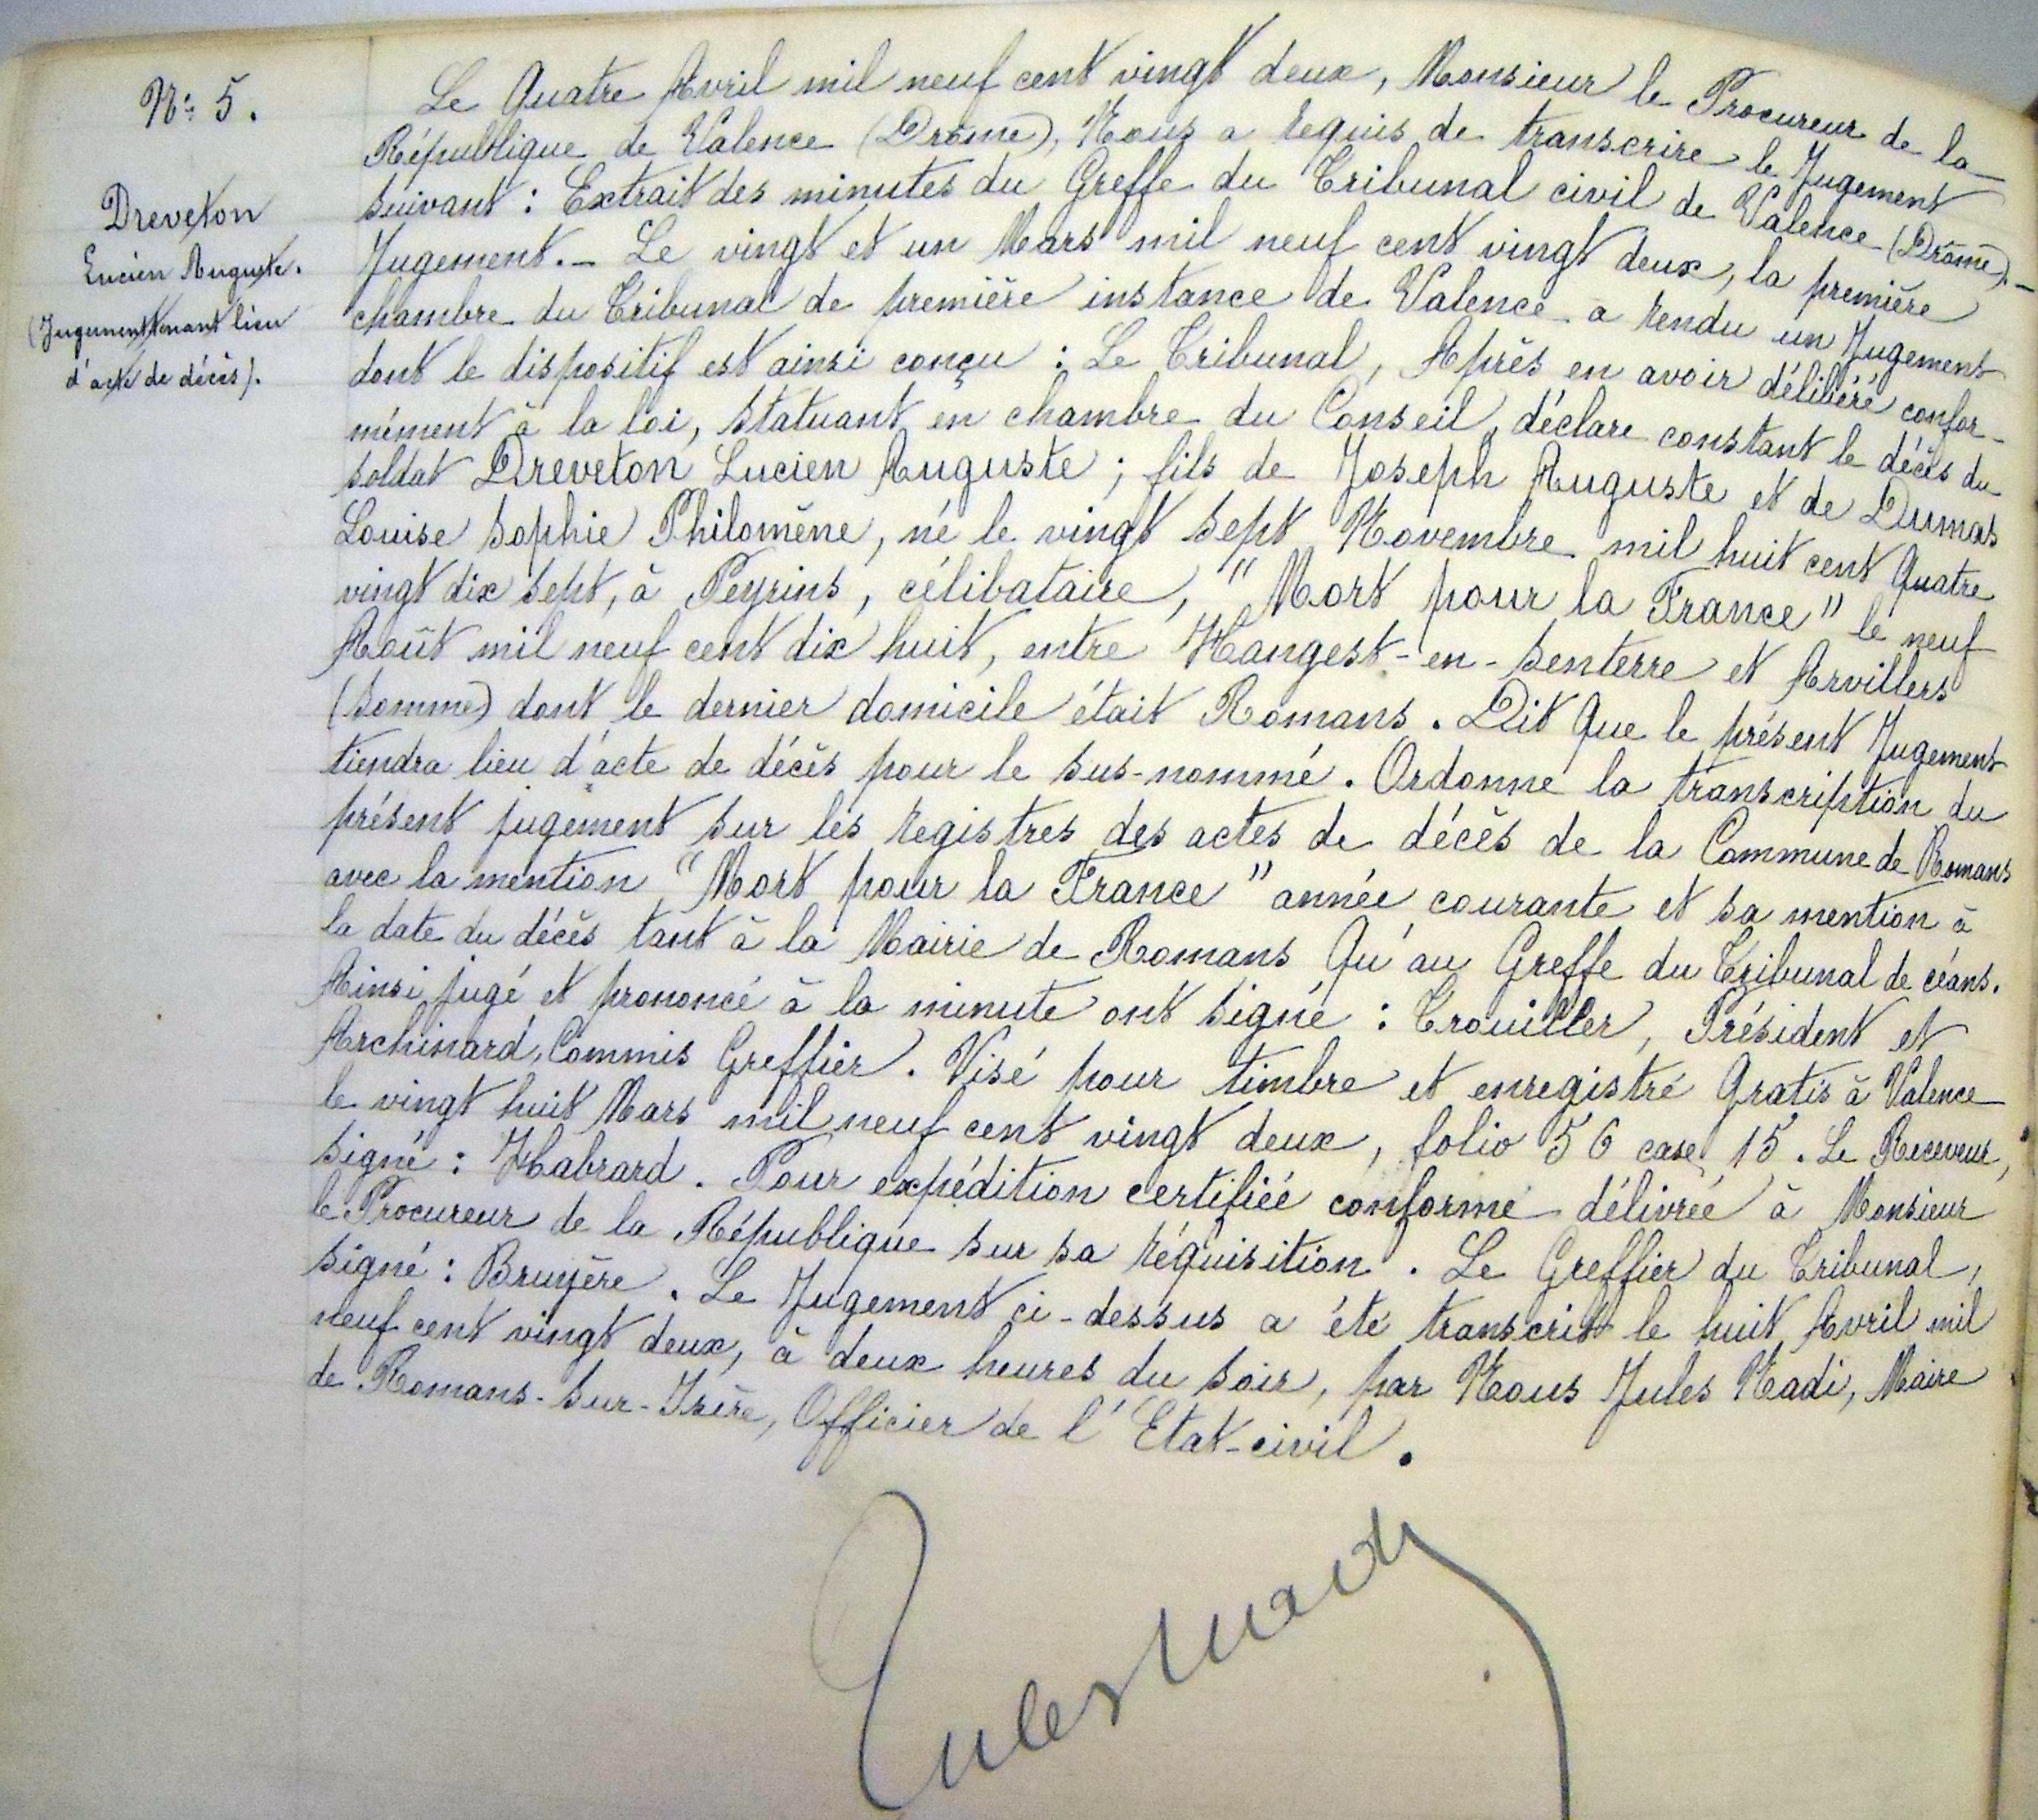 N° 5.
Dreveton
Lucien Auguste.
(Jugement tenant lieu
d'acte de décès).
Le Quatre Avril mil neuf cent vingt deux, Monsieur le Procureur de la
République de Valence (Drôme), Nous a requis de transcrire le Jugement
suivant : Extrait des minutes du Greffe du Tribunal civil de Valence (Drôme). -
Jugement. - Le vingt et un Mars mil neuf cent vingt deux, la première
chambre du Tribunal de première instance de Valence a rendu un Jugement
dont le dispositif est ainsi conçu : Le Tribunal, Après en avoir délibéré confor-
mément à la loi, statuant en chambre du Conseil, déclare constant le décès du
soldat Dreveton Lucien Auguste ; fils de Joseph Auguste et de Dumas
Louise Sophie Philomène, né le vingt sept Novembre mil huit cent Quatre
vingt dix sept, à Peyrins, célibataire, "Mort pour la France" le neuf
Août mil neuf cent dix huit, entre Hangest-en-Senterre et Arvillers
(Somme) dont le dernier domicile était Romans. Dit que le présent Jugement
tiendra lieu d'acte de décès pour le sus-nommé. Ordonne la transcription du
présent jugement sur les registres des actes de décès de la Commune de Romans
avec la mention "Mort pour la France" année courante et sa mention à
la date du décès tant à la Mairie de Romans Qu'au Greffe du Tribunal de céans.
Ainsi jugé et prononcé à la minute ont signé : Trouiller, Président et
Archinard, Commis Greffier. Visé pour timbre et enregistré Gratis à Valence
le vingt huit Mars mil neuf cent vingt deux, folio 56 case 15. Le Receveur,
signé : Habrard. Pour expédition certifiée conforme délivrée à Monsieur
le Procureur de la République sur sa réquisition. Le Greffier du Tribunal,
signé : Bruyère. Le Jugement ci-dessus a été transcrit le huit Avril mil
neuf cent vingt deux, à deux heures du soir, par Nous Jules Nadi, Maire
de Romans-sur-Isère, Officier de l'Etat-civil.
Jules Nadi